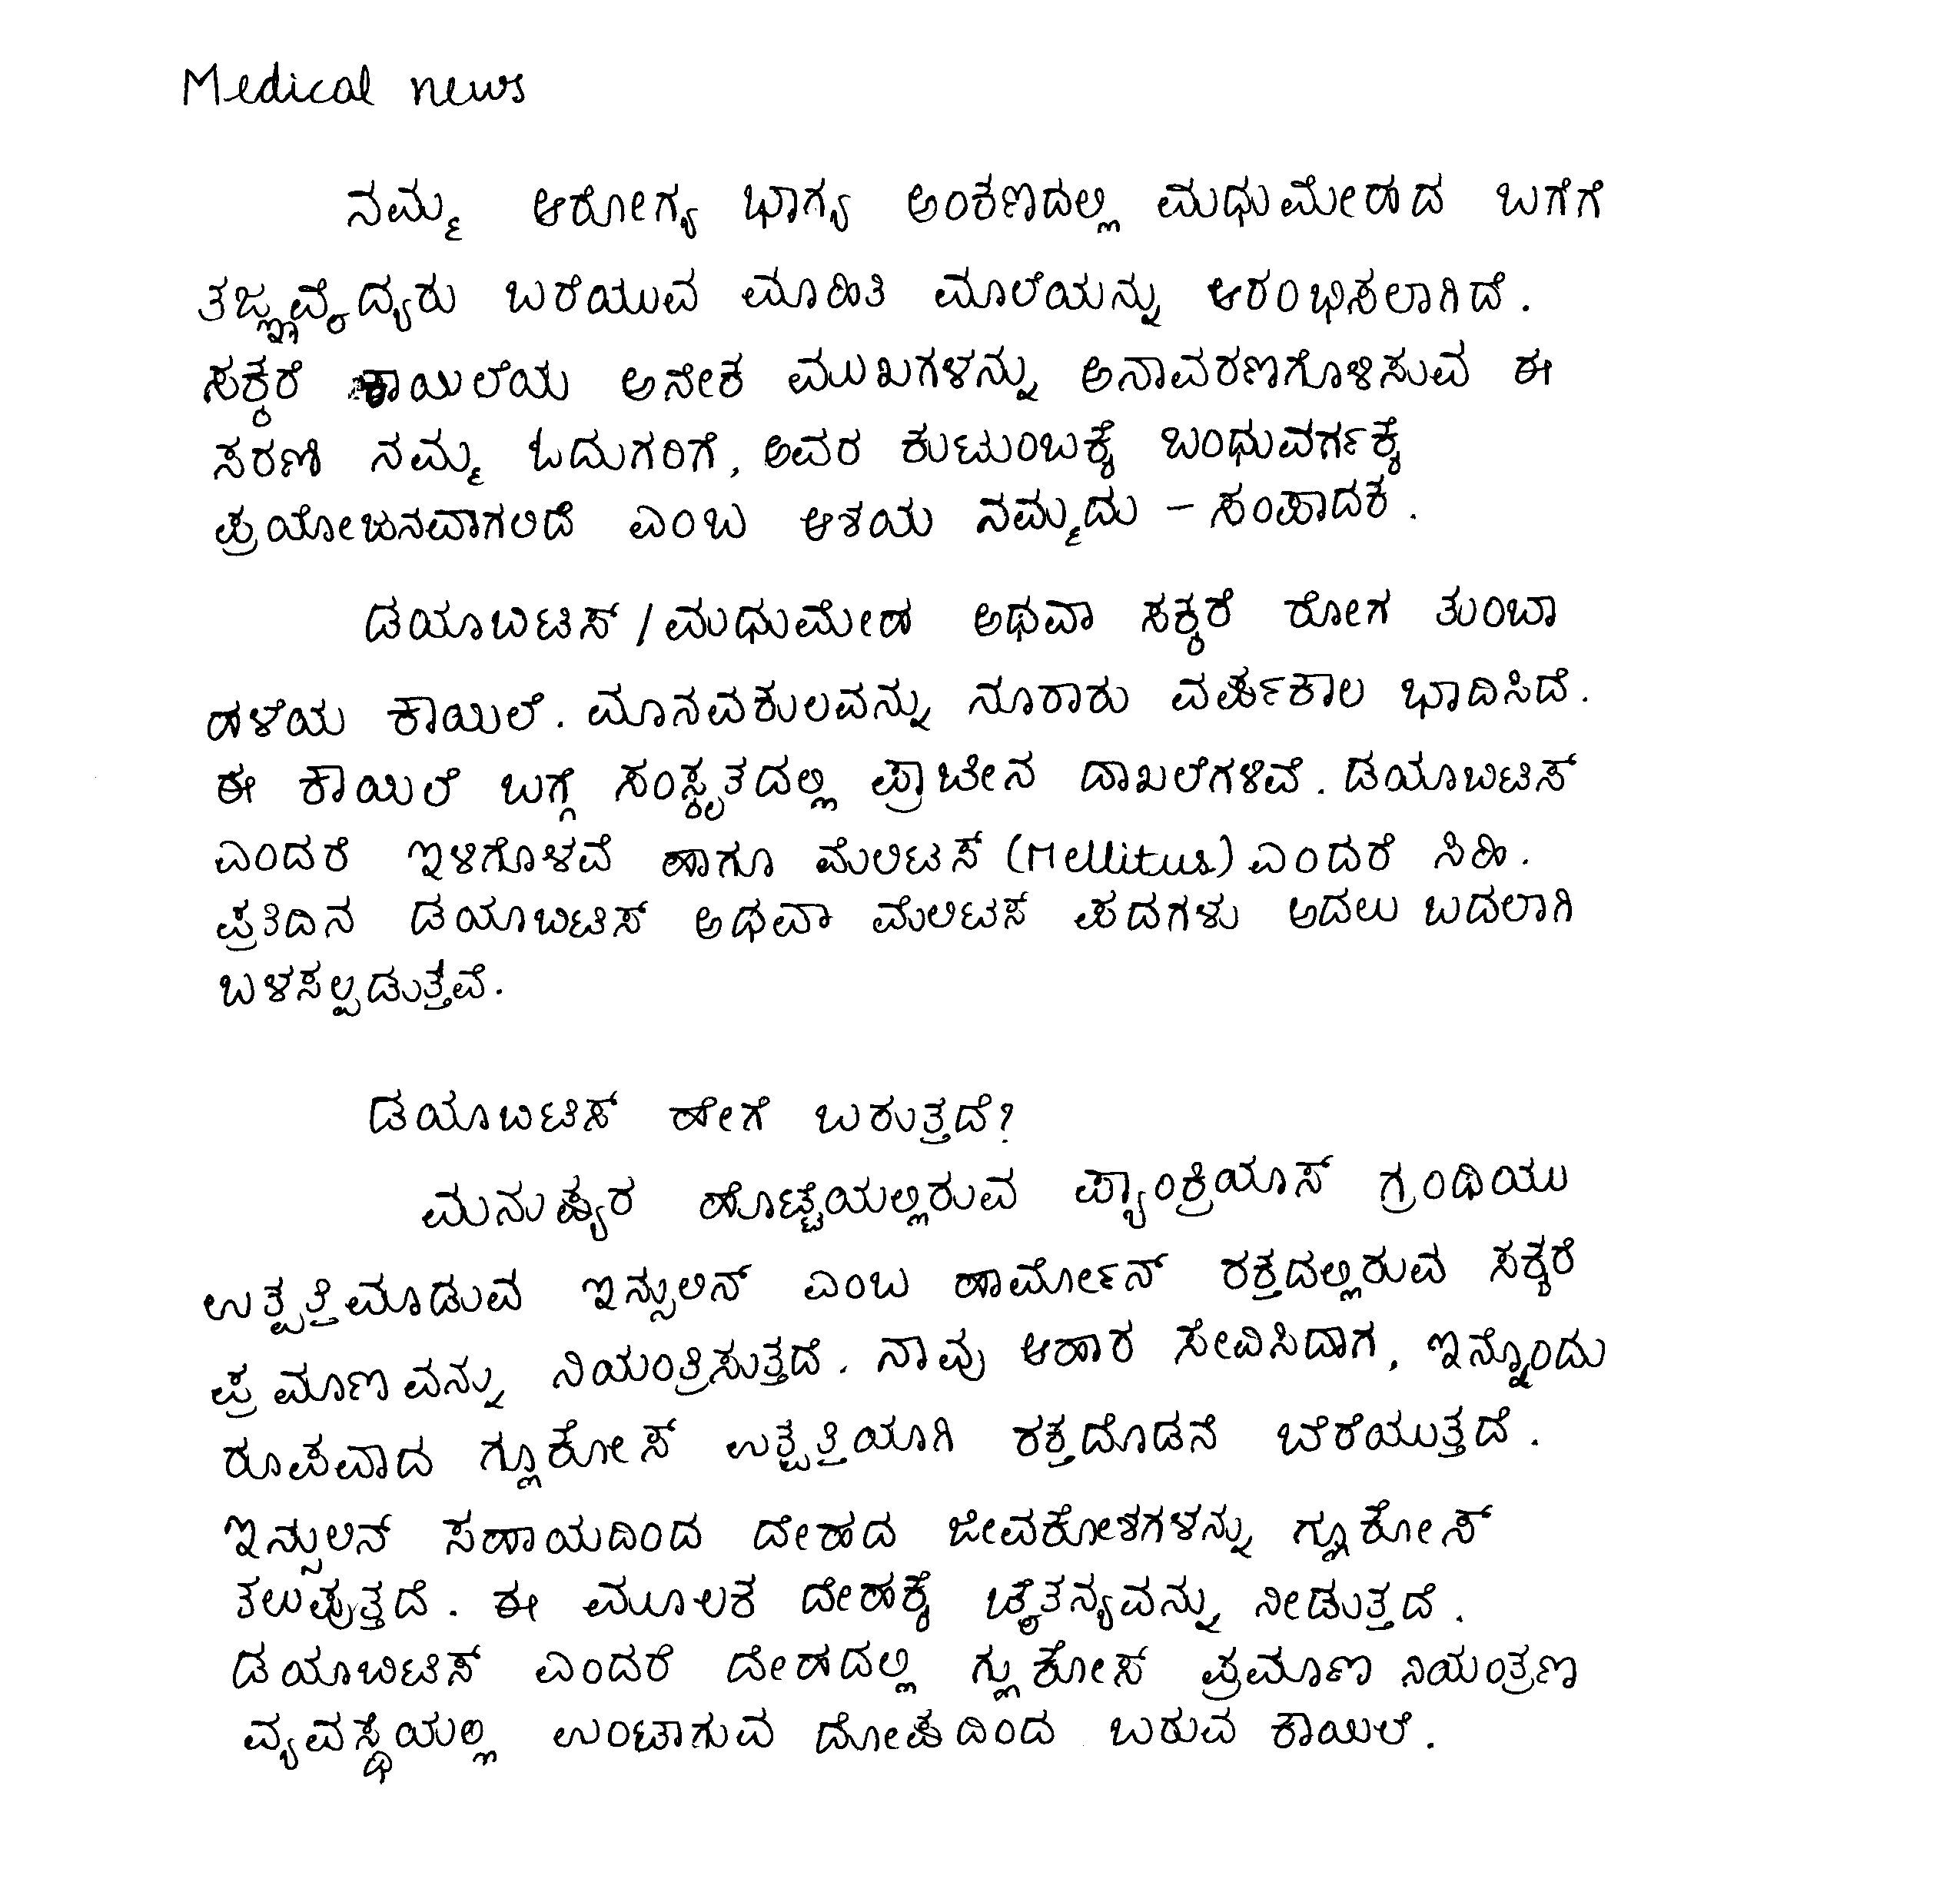 Medical news
ನಮ್ಮ ಆರೋಗ್ಯ ಭಾಗ್ಯ ಅಂಕಣದಲ್ಲಿ ಮಧುಮೇಹದ ಬಗೆಗೆ
ತಜ್ಞವೈದ್ಯರು ಬರೆಯುವ ಮಾಹಿತಿ ಮಾಲೆಯನ್ನು ಆರಂಭಿಸಲಾಗಿದೆ.
ಸಕ್ಕರೆ ಕಾಯಿಲೆಯ ಅನೇಕ ಮುಖಗಳನ್ನು ಅನಾವರಣಗೊಳಿಸುವ ಈ
ಸರಣಿ ನಮ್ಮ ಓದುಗರಿಗೆ, ಅವರ ಕುಟುಂಬಕ್ಕೆ ಬಂಧುವರ್ಗಕ್ಕೆ
ಪ್ರಯೋಜನವಾಗಲಿದೆ ಎಂಬ ಆಶಯ ನಮ್ಮದು - ಸಂಪಾದಕ.
ಡಯಾಬಿಟಿಸ್ / ಮಧುಮೇಹ ಅಥವಾ ಸಕ್ಕರೆ ರೋಗ ತುಂಬಾ
ಹಳೆಯ ಕಾಯಿಲೆ. ಮಾನವಕುಲವನ್ನು ನೂರಾರು ವರ್ಷಕಾಲ ಭಾದಿಸಿದೆ.
ಈ ಕಾಯಿಲೆ ಬಗ್ಗೆ ಸಂಸ್ಕೃತದಲ್ಲಿ ಪ್ರಾಚೀನ ದಾಖಲೆಗಳಿವೆ. ಡಯಾಬಿಟಿಸ್
ಎಂದರೆ ಇಳಿಗೊಳವೆ ಹಾಗೂ ಮೆಲಿಟಸ್ (Mellitus) ಎಂದರೆ ಸಿಹಿ.
ಪ್ರತಿದಿನ ಡಯಾಬಿಟಿಸ್ ಅಥವಾ ಮೆಲಿಟಸ್ ಪದಗಳು ಅದಲು ಬದಲಾಗಿ
ಬಳಸಲ್ಪಡುತ್ತೇವೆ.
ಡಯಾಬಿಟಿಸ್ ಹೇಗೆ ಬರುತ್ತದೆ?
ಮನುಷ್ಯರ ಹೊಟ್ಟೆಯಲ್ಲಿರುವ ಪ್ಯಾಂಕ್ರಿಯಾಸ್ ಗ್ರಂಥಿಯು
ಉತ್ಪತ್ತಿಮಾಡುವ ಇನ್ಸುಲಿನ್ ಎಂಬ ಹಾರ್ಮೋನ್ ರಕ್ತದಲ್ಲಿರುವ ಸಕ್ಕರೆ
ಪ್ರಮಾಣವನ್ನು ನಿಯಂತ್ರಿಸುತ್ತದೆ. ನಾವು ಆಹಾರ ಸೇವಿಸಿದಾಗ, ಇನ್ನೊಂದು
ರೂಪವಾದ ಗ್ಲೂಕೋಸ್ ಉತ್ಪತ್ತಿಯಾಗಿ ರಕ್ತದೊಡನೆ ಬೆರೆಯುತ್ತದೆ.
ಇನ್ಸುಲಿನ್ ಸಹಾಯದಿಂದ ದೇಹದ ಜೀವಕೋಶಗಳನ್ನು ಗ್ಲೂಕೋಸ್
ತಲುಪುತ್ತದೆ. ಈ ಮೂಲಕ ದೇಹಕ್ಕೆ ಚೈತನ್ಯವನ್ನು ನೀಡುತ್ತದೆ.
ಡಯಾಬಿಟಿಸ್ ಎಂದರೆ ದೇಹದಲ್ಲಿ ಗ್ಲುಕೋಸ್ ಪ್ರಮಾಣ ನಿಯಂತ್ರಣ
ವ್ಯವಸ್ಥೆಯಲ್ಲಿ ಉಂಟಾಗುವ ದೋಷದಿಂದ ಬರುವ ಕಾಯಿಲೆ.